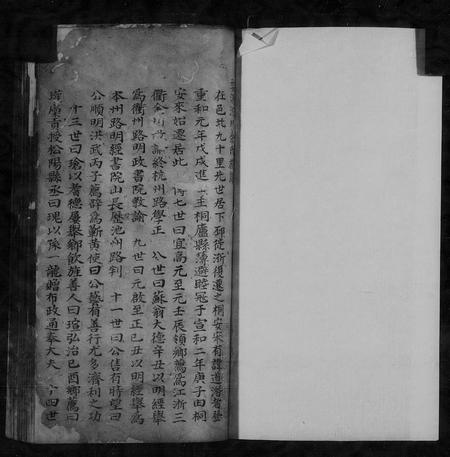 在邑北九十里先世居下邳徙浙復遷之桐安宋有諱道潛者登
重和元年戊戌進士主桐廬縣簿避睦寇于宣和二年庚子由桐
安來始遷居此 傳七世曰宜高元至元壬辰領鄉薦為江浙二
衢金 終杭州路學正 八世曰蘇翁大德辛丑以明經舉
為衢州路明政書院教諭 九世曰元啟至正巳丑以明經舉為
本州路明經書院山長歷池州路判 十一世曰公售有時望曰
公順明洪武丙子薦辟為蘄黃使曰公藝有善行尤多濟利之功
十三世曰瑲以耆德屢舉鄉飲旌善人曰瑄弘治己酉鄉薦曰
授松陽縣丞曰瑰以孫一龍贈布政通奉大夫 十四世